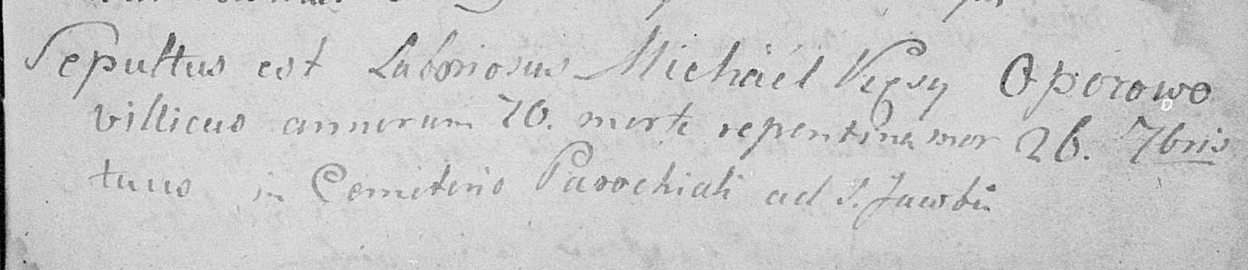 Sepultus est Laboriosus Michäél Oporowo
villicus annorum 70. morte repentina mor 26. 7bris
tuus in Cemeterio Parochiali ad S. Jacobū